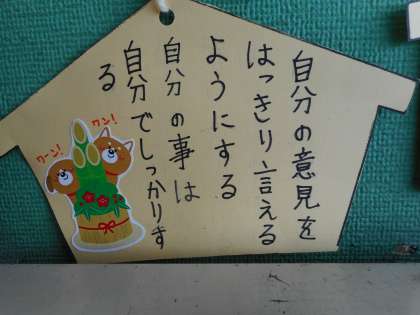 自分の意見を
はっきり言える
ようにする
自分の事は
自分でしっかりす
る
ワン!
ワーン!